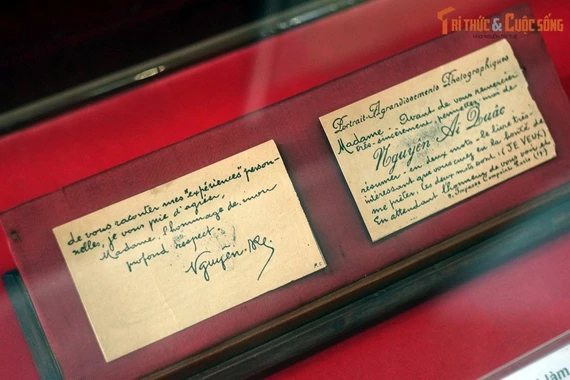 TRI THỨC & CUỘC SỐNG
Portrait-Agrandissements Photographiques
Madame. Avant de vous remercier
très-sincèrement, permettez moi de
Nguyên Ai Quâc
résumer - en deux mots - le livre très-
intéressant que vous avez eu la bonté de
me prêter. les deux mots sont: (JE VEUX)
En attendant l'honneur de vous voir et
9, Impasse Compoint Paris (17e)
de vous raconter mes "expériences" person-
nelles, je vous prie d'agréer,
Madame, l'hommage de mon
profond respect.
Nguyên
làm